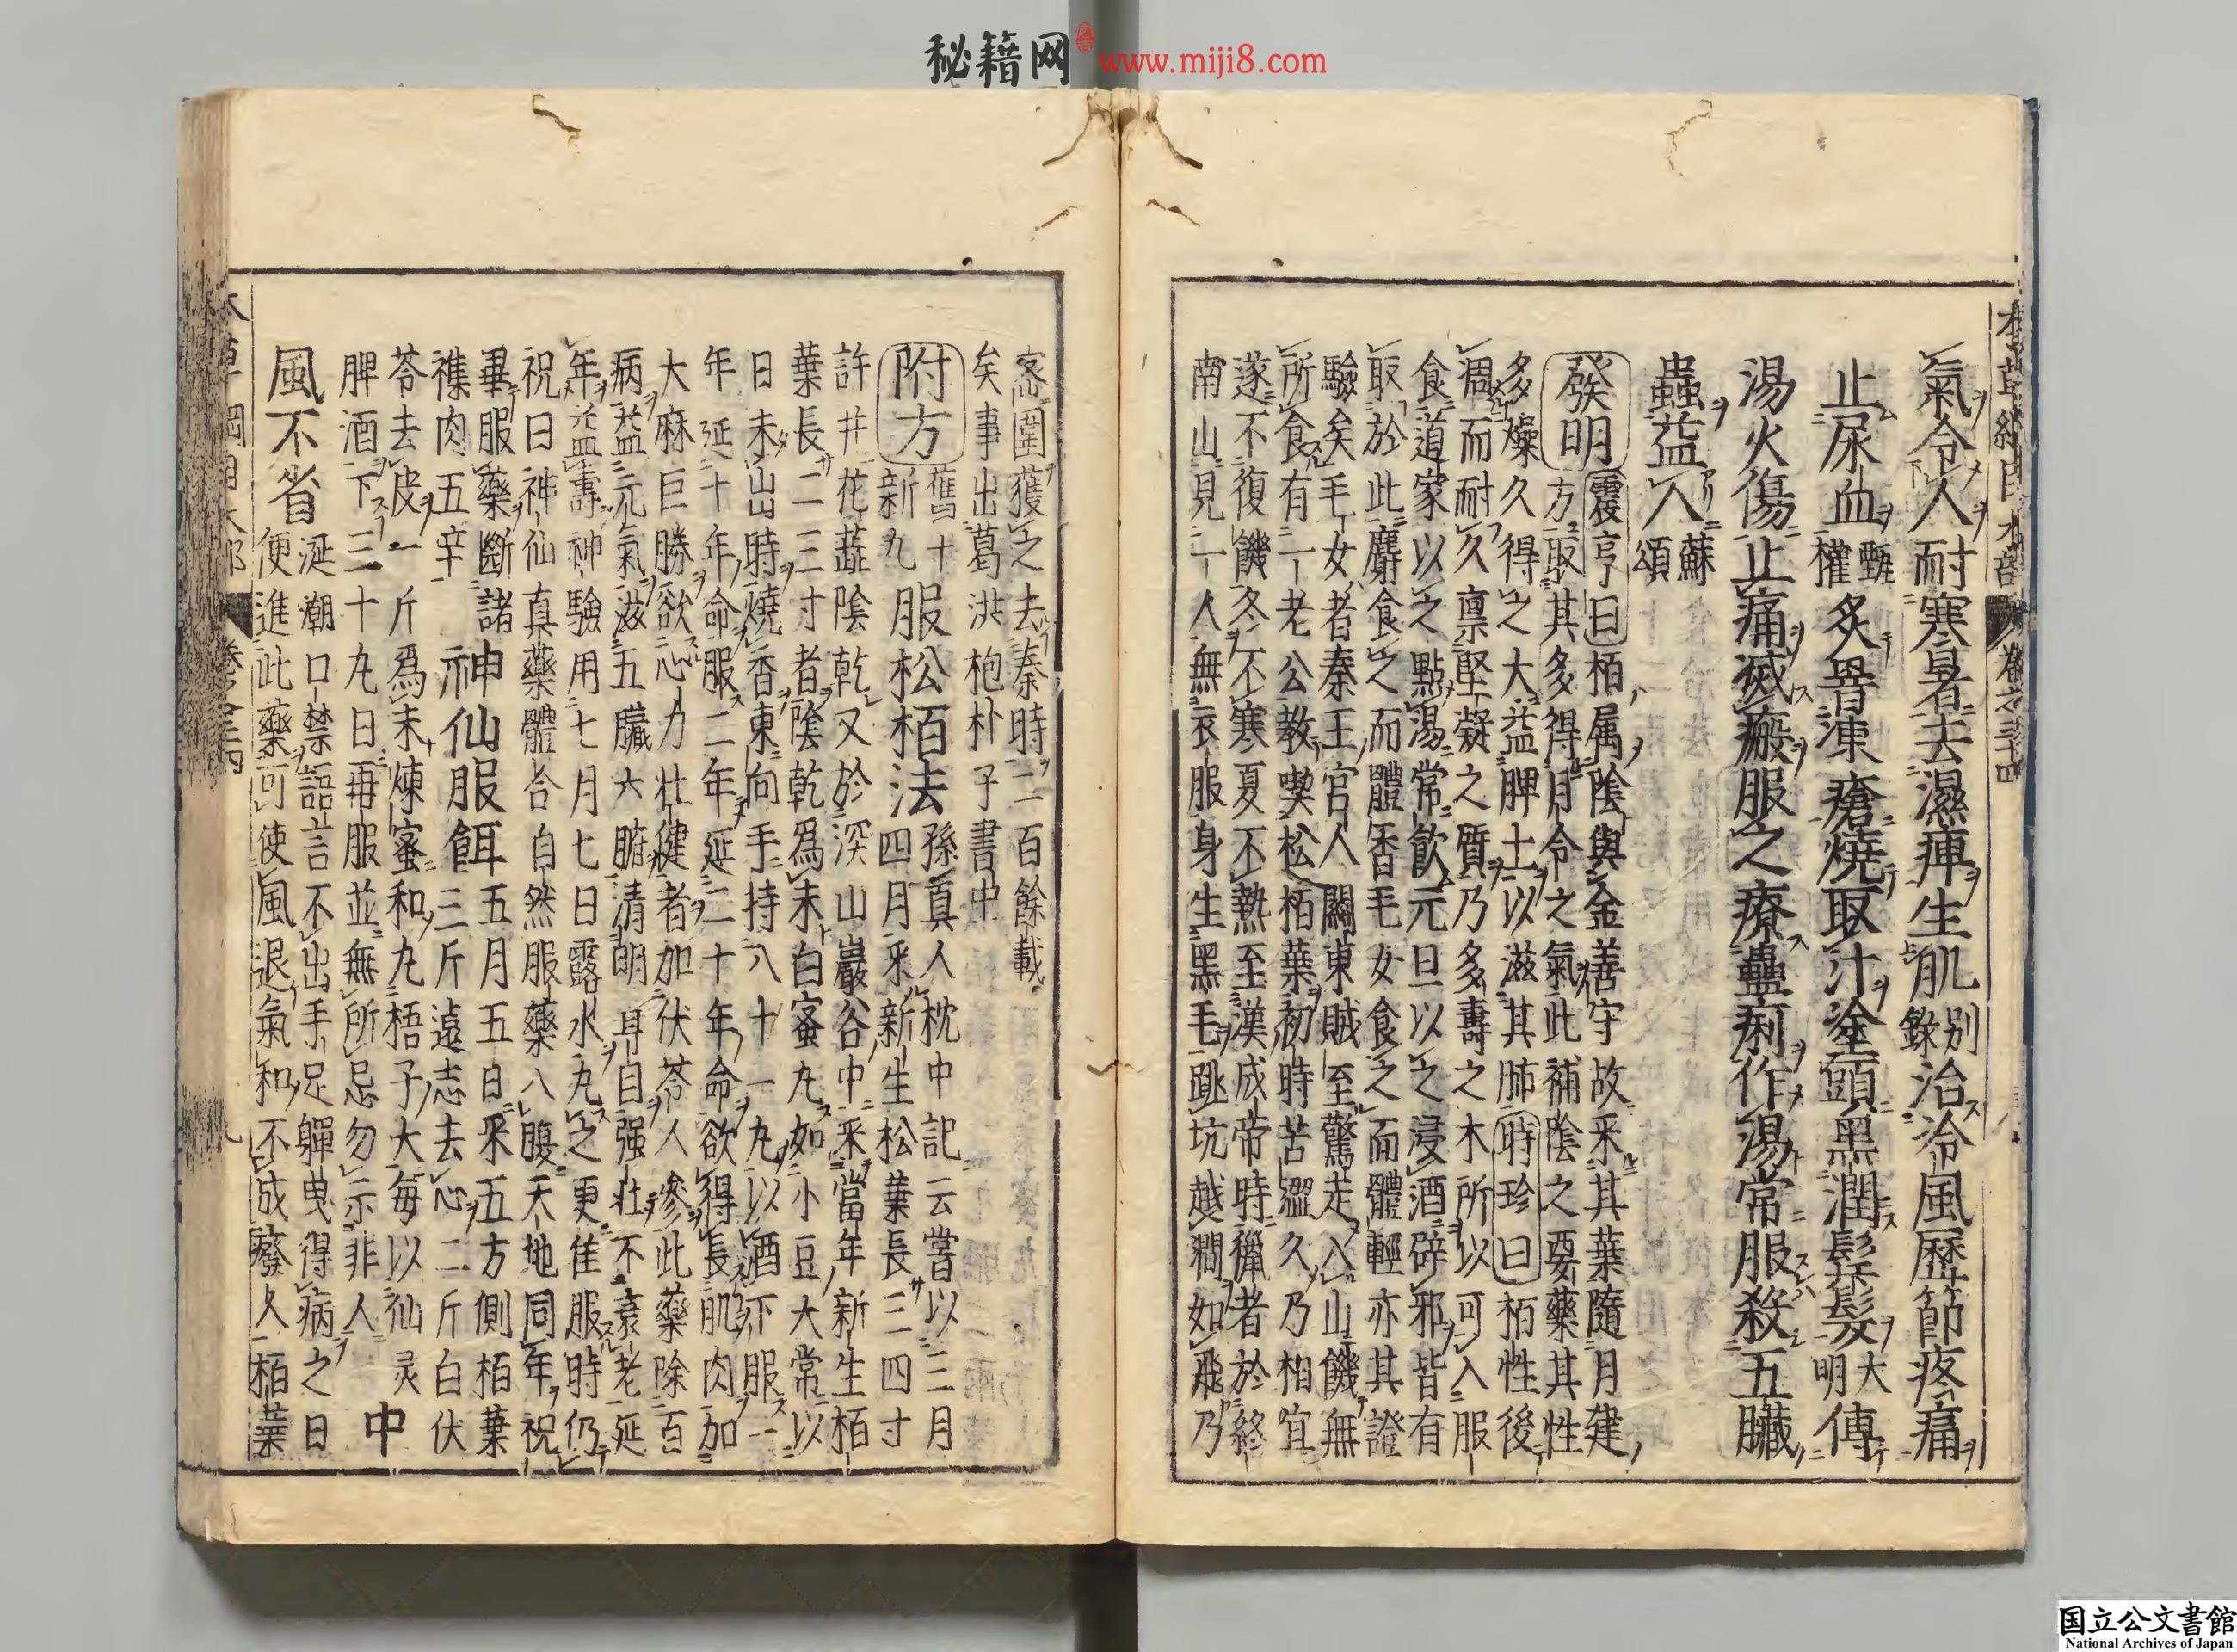 秘籍网 www.miji8.com
氣令人耐寒暑去濕痺生肌别錄治冷風歷節疼痛
止尿血甄權炙罯凍瘡燒取汁塗頭黑潤鬢髮大明傅
湯火傷止痛滅瘢服之療蠱痢作湯常服殺五臓
蟲益人蘇頌
發明震亨曰栢属陰與金善守故采其葉隨月建
方取其多得月令之氣此補陰之要藥其性
多燥久得之大益脾土以滋其肺時珍曰栢性後
凋而耐久禀堅凝之質乃多壽之木所以可入服
食道家以之點湯常飮元旦以之浸酒辟邪皆有
取於此麝食之而體香毛女食之而體輕亦其證
驗矣毛女者秦王宮人關東賊至驚走入山饑無
所食有一老公教喫松栢葉初時苦澀久乃相宜
遂不復饑冬不寒夏不熱至漢成帝時獵者於終
南山見一人無衣服身生黑毛跳坑越澗如飛乃
密圍獲之去秦時二百餘載
矣事出葛洪枹朴子書中
附方舊十新九服松栢法孫真人枕中記云嘗以三月
四月采新生松葉長三四寸
許并花蕋陰乾又於深山巖谷中采當年新生栢
葉長二三寸者陰乾爲末白蜜丸如小豆大常以
日未出時燒香東向手持八十一丸以酒下服一
年延十年命服二年延二十年命欲得長肌肉加
大麻巨勝欲心力壮健者加伏苓人參此藥除百
病益元氣滋五臓六腑清明耳目强壮不衰老延
年益壽神驗用七月七日露水丸之更佳服時仍
祝曰神仙真藥體合自然服藥八腹天地同年祝
畢服藥斷諸
襍肉五辛神仙服餌五月五日采五方側栢葉
三斤遠志去心二斤白伏
苓去皮一斤爲末煉蜜和丸梧子大每以仙灵
脾酒下三十丸日再服並無所忌勿示非人中
風不省涎潮口禁語言不出手足軃曳得病之日
便進此藥可使風退氣和不成癈人栢葉
国立公文書館
National Archives of Japan